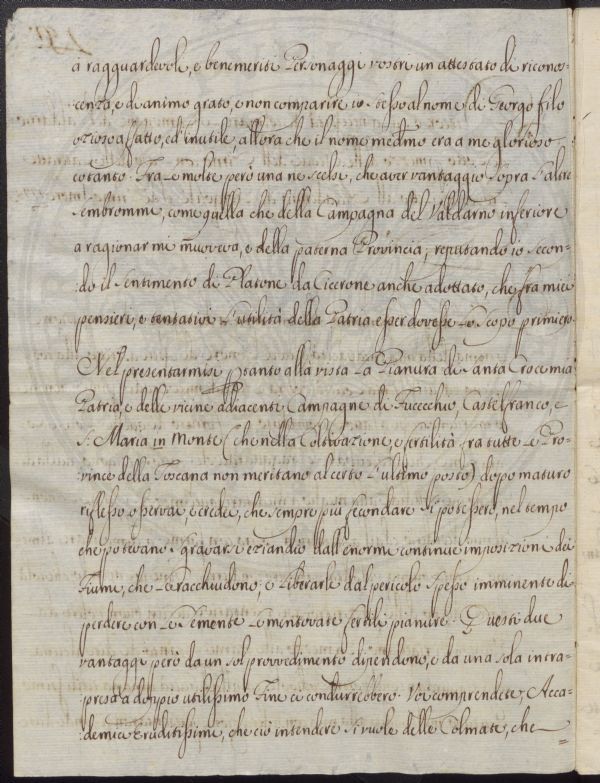 à ragguardevole, e benemeriti Personaggi vostri un attestato di riconos-
cenza, e di animo grato, e non comparire io stesso al nome di Georgofilo
ozioso affatto, ed inutile, allora che il nome medmo era a me glorioso
cotanto. Tra le molte però una ne scelsi, che aver vantaggio sopra l'altre
sembrommi, come quella che della Campagna del Valdarno inferiore
a ragionar mi muoveva, e della paterna Provincia, reputando io secon-
do il sentimento di Platone da Cicerone anche adottato, che fra miei
pensieri, e tentativi l'utilità della Patria esser dovesse lo scopo primiero.
Nel presentarmisi ptanto alla vista la Pianura di Santa Croce mia
Patria, e delle vicine adiacenti Campagne di Fucecchio, Castelfranco, e
S. Maria in Monte (che nella Coltivazione, e fertilità fra tutte le Pro-
vince della Toscana non meritano al certo l'ultimo posto) dopo maturo
riflesso osservai, e credei, che sempre più fecondare si potessero, nel tempo
che potevano sgravarsi eziandio dall'enormi continue imposizioni dei
Fiumi, che le racchiudono, e liberarle dal pericolo spesso imminente di
perdere con le semente le mentovate fertili pianure. Questi due
vantaggi però da un sol provvedimento dipendono, e da una sola intra-
presa a doppio utilissimo fine ci condurrebbero. Voi comprendete, Acca-
demici Eruditissimi, che ciò intendere si vuole delle Colmate, che